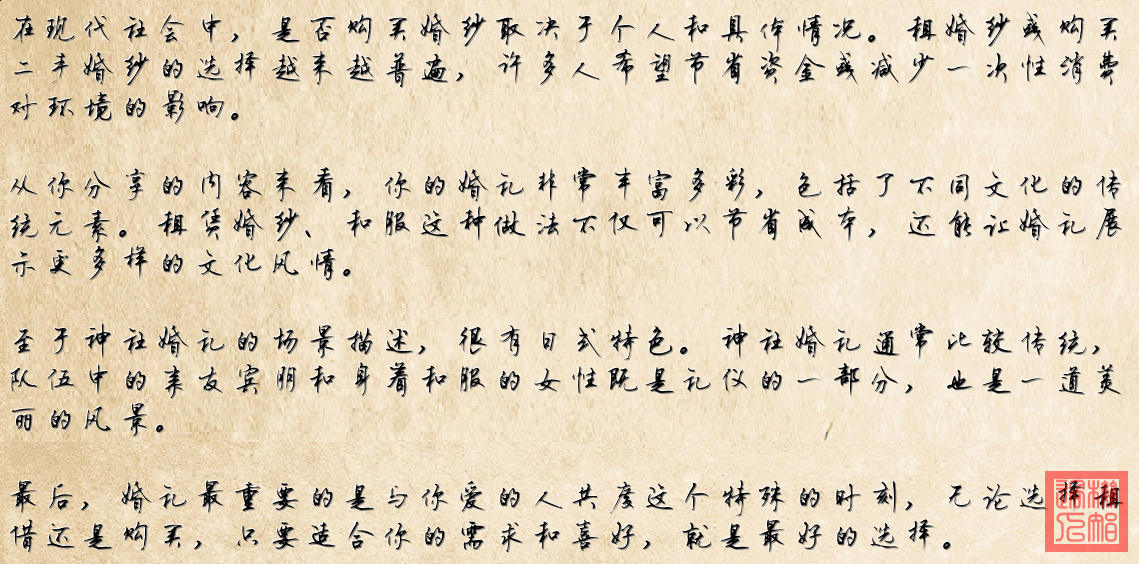 在现代社会中，是否购买婚纱取决于个人和具体情况。租婚纱或购买
二手婚纱的选择越来越普遍，许多人希望节省资金或减少一次性消费
对环境的影响。
从你分享的内容来看，你的婚礼非常丰富多彩，包括了不同文化的传
统元素。租赁婚纱、和服这种做法不仅可以节省成本，还能让婚礼展
示更多样的文化风情。
至于神社婚礼的场景描述，很有日式特色。神社婚礼通常比较传统，
队伍中的亲友宾朋和身着和服的女性既是礼仪的一部分，也是一道美
丽的风景。
最后，婚礼最重要的是与你爱的人共度这个特殊的时刻，无论选择租
借还是购买，只要适合你的需求和喜好，就是最好的选择。